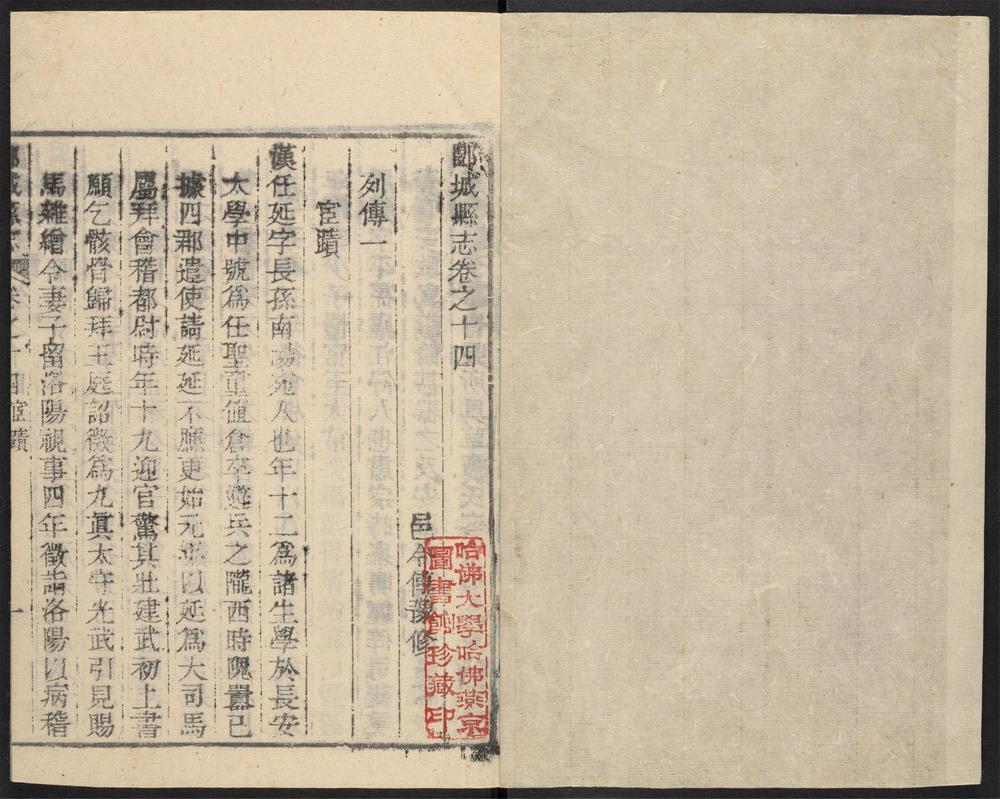 郾城縣志卷之十四
邑令傅豫修
列傳一
宦蹟
漢任延字長孫南陽宛人也年十二爲諸生學於長安
太學中號爲任聖童値倉卒避兵之隴西時隗囂已
據四郡遣使請延延不應更始元年以延爲大司馬
屬拜會稽都尉時年十九迎官驚其壯建武初上書
願乞骸骨歸拜王庭詔徵爲九眞太守光武引見賜
馬雜繒令妻子留洛陽視事四年徵詣洛陽以病稽
郾城縣志 卷之十四宦蹟 一
哈佛大學哈佛燕京
圖書館珍藏印